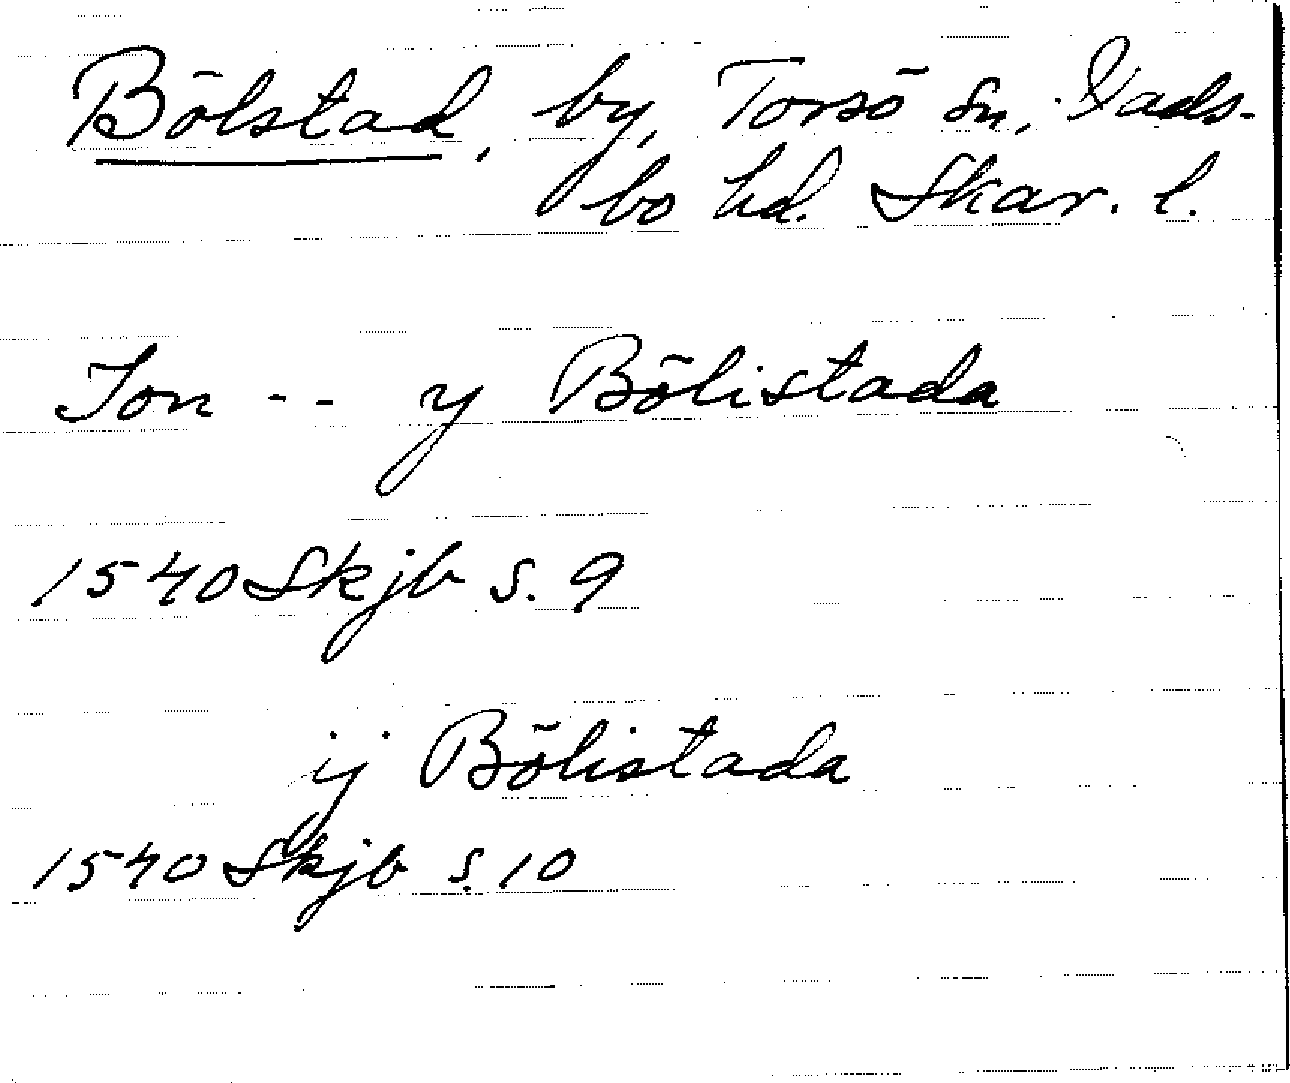 Bölstad, by, Torsö sn, Vads-
bo hd. Skar. l.
Jon -- y Bölistada
1540 Skjb s. 9
ij Bölistada
1540 Skjb s. 10